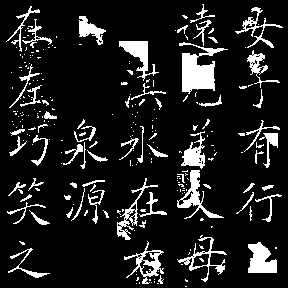 女子有行
遠兄弟父母
淇水在右
泉源
在左巧笑之